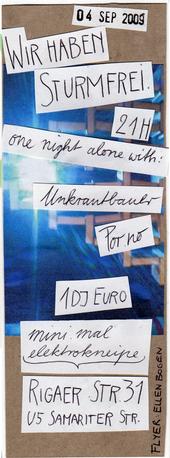 04 SEP 2009
WIR HABEN
STURMFREI.
21H
one night alone with:
Unkrautbauer
Porno
1DJ EURO
mini.mal
elektrokneipe
RIGAER STR. 31
U5 SAMARITER STR.
FLYER: ELLEN BOGEN